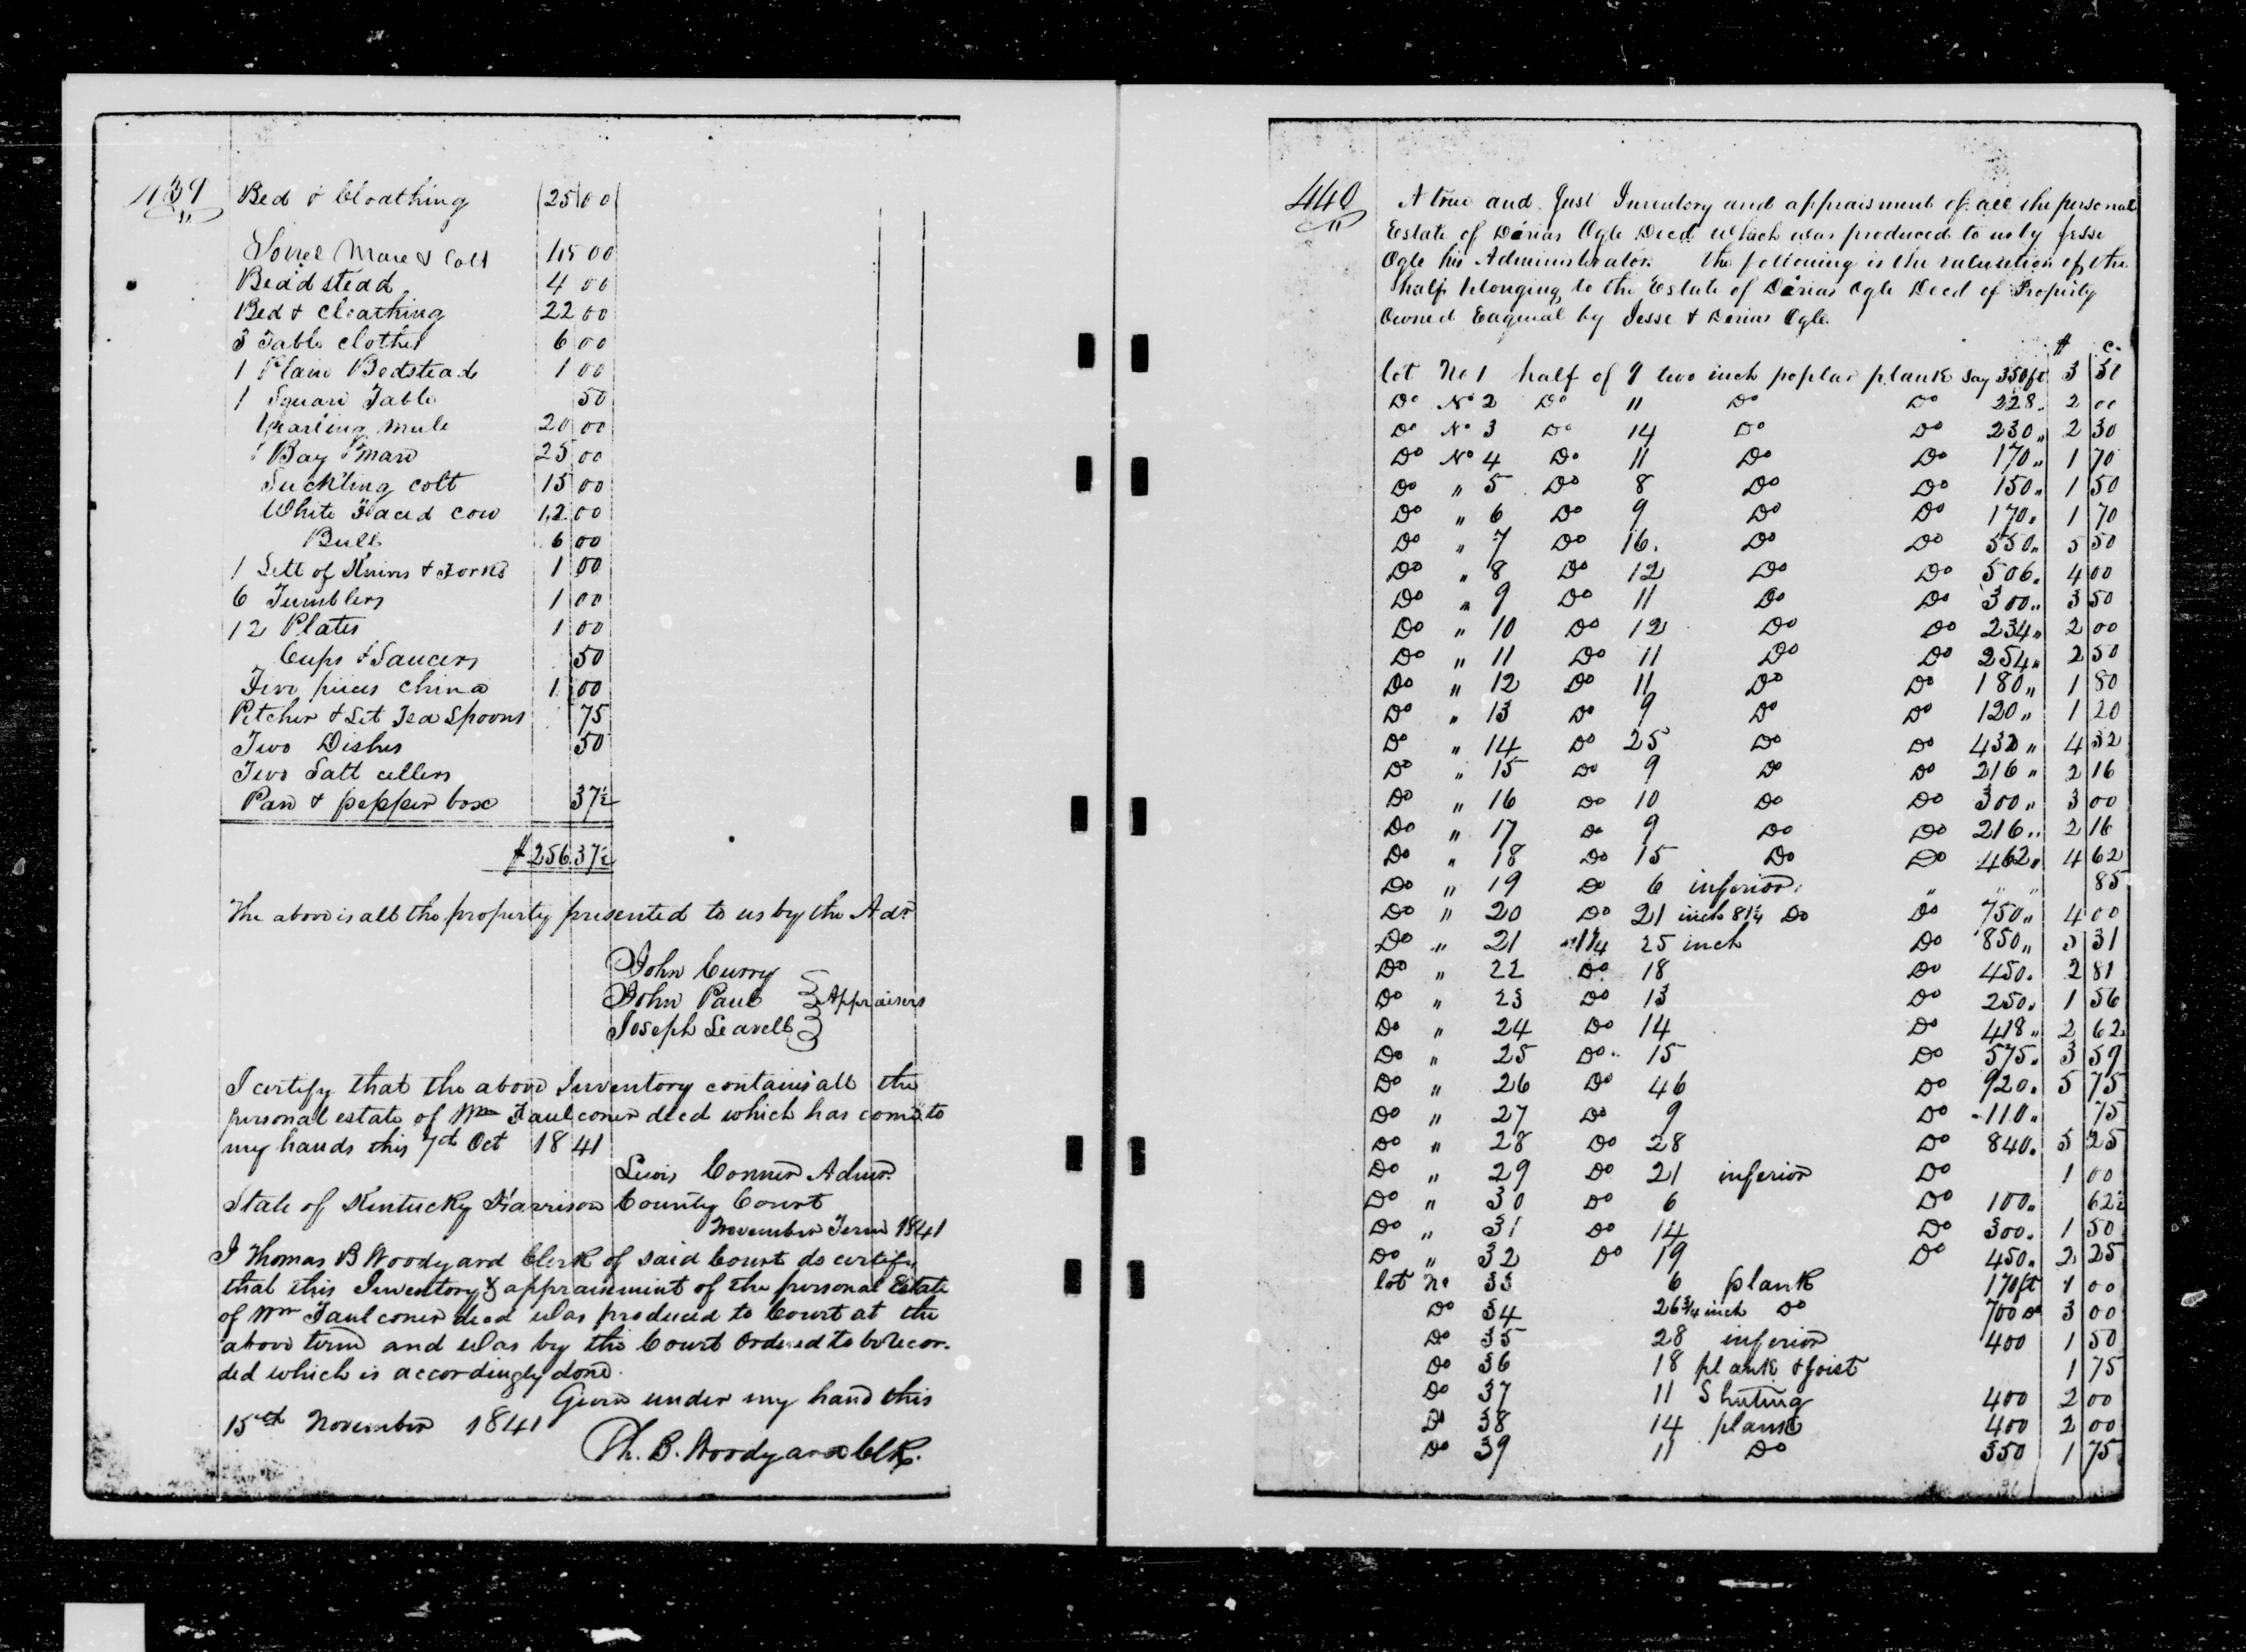 439
Bed & Cloathing 25 00
Sorrel Mare & Colt 45 00
Beadstead 4 00
Bed & Cloathing 22 00
3 Table clothes 6 00
1 Plain Bedstead 1 00
1 Square Table 50
Yearling mule 20 00
1 Bay mare 25 00
Suckling colt 15 00
White Faced cow 12 00
Bull 6 00
1 Sett of Knives & Forks 1 00
6 Tumblers 1 00
12 Plates 1 00
Cups & Saucers 50
Two pieces china 1 00
Pitcher & Set Tea Spoons 75
Two Dishes 50
Two Salt cellers
Pan & pepper box 37½
$256.37½
The above is all the property presented to us by the Adr
John Curry
John Paul } Appraisers
Joseph Leavell
I certify that the above Inventory contains all the
personal estate of Wm Faulconer decd which has come to
my hands this 7th Oct 1841
Lewis Conner Admr.
State of Kentucky Harrison County Court
November Term 1841
I Thomas B Woodyard Clerk of said Court do certify
that this Inventory & appraisement of the personal Estate
of Wm Faulconer decd was produced to Court at the
above term and was by the Court Ordered to be recor-
ded which is accordingly done.
Given under my hand this
15th November 1841
Th. B. Woodyard Clk.
440
A true and Just Inventory and appraisment of all the personal
Estate of Darias Ogle Decd which was produced to us by Jesse
Ogle his Administrator. the following is the valuation of the
half belonging to the Estate of Darias Ogle Decd of Property
Owned Eaqueal by Jesse & Darias Ogle.
$ c.
lot No 1 half of 9 two inch poplar plank say 350ft 3 50
Do No 2 Do 11 Do Do 228. 2 00
Do No 3 Do 14 Do Do 230" 2 30
Do No 4 Do 11 Do Do 170" 1 70
Do " 5 Do 8 Do Do 150" 1 50
Do " 6 Do 9 Do Do 170" 1 70
Do " 7 Do 16. Do Do 550" 5 50
Do " 8 Do 12 Do Do 506. 4 00
Do " 9 Do 11 Do Do 300" 3 50
Do " 10 Do 12 Do Do 234" 2 00
Do " 11 Do 11 Do Do 254" 2 50
Do " 12 Do 11 Do Do 180" 1 80
Do " 13 Do 9 Do Do 120" 1 20
Do " 14 Do 25 Do Do 432" 4 32
Do " 15 Do 9 Do Do 216" 2 16
Do " 16 Do 10 Do Do 300" 3 00
Do " 17 Do 9 Do Do 216" 2 16
Do " 18 Do 15 Do Do 462" 4 62
Do " 19 Do 6 inferior " " " 85
Do " 20 Do 21 inch & 1¼ Do Do 750" 4 00
Do " 21 1¼ 25 inch Do 850" 5 31
Do " 22 Do 18 Do 450. 2 81
Do " 23 Do 13 Do 250. 1 56
Do " 24 Do 14 Do 418" 2 62
Do " 25 Do 15 Do 575. 3 59
Do " 26 Do 46 Do 920. 5 75
Do " 27 Do 9 Do 110" 75
Do " 28 Do 28 Do 840. 5 25
Do " 29 Do 21 inferior Do 1 00
Do " 30 Do 6 Do 100" 62½
Do " 31 Do 14 Do 300. 1 50
Do " 32 Do 19 Do 450. 2 25
lot No 33 6 plank 170ft 1 00
Do 34 26 ¾ inch Do 700 3 00
Do 35 28 inferior 400 1 50
Do 36 18 plank & Joist 1 75
Do 37 11 Shuting 400 2 00
Do 38 14 plank 400 2 00
Do 39 11 Do 350 1 75